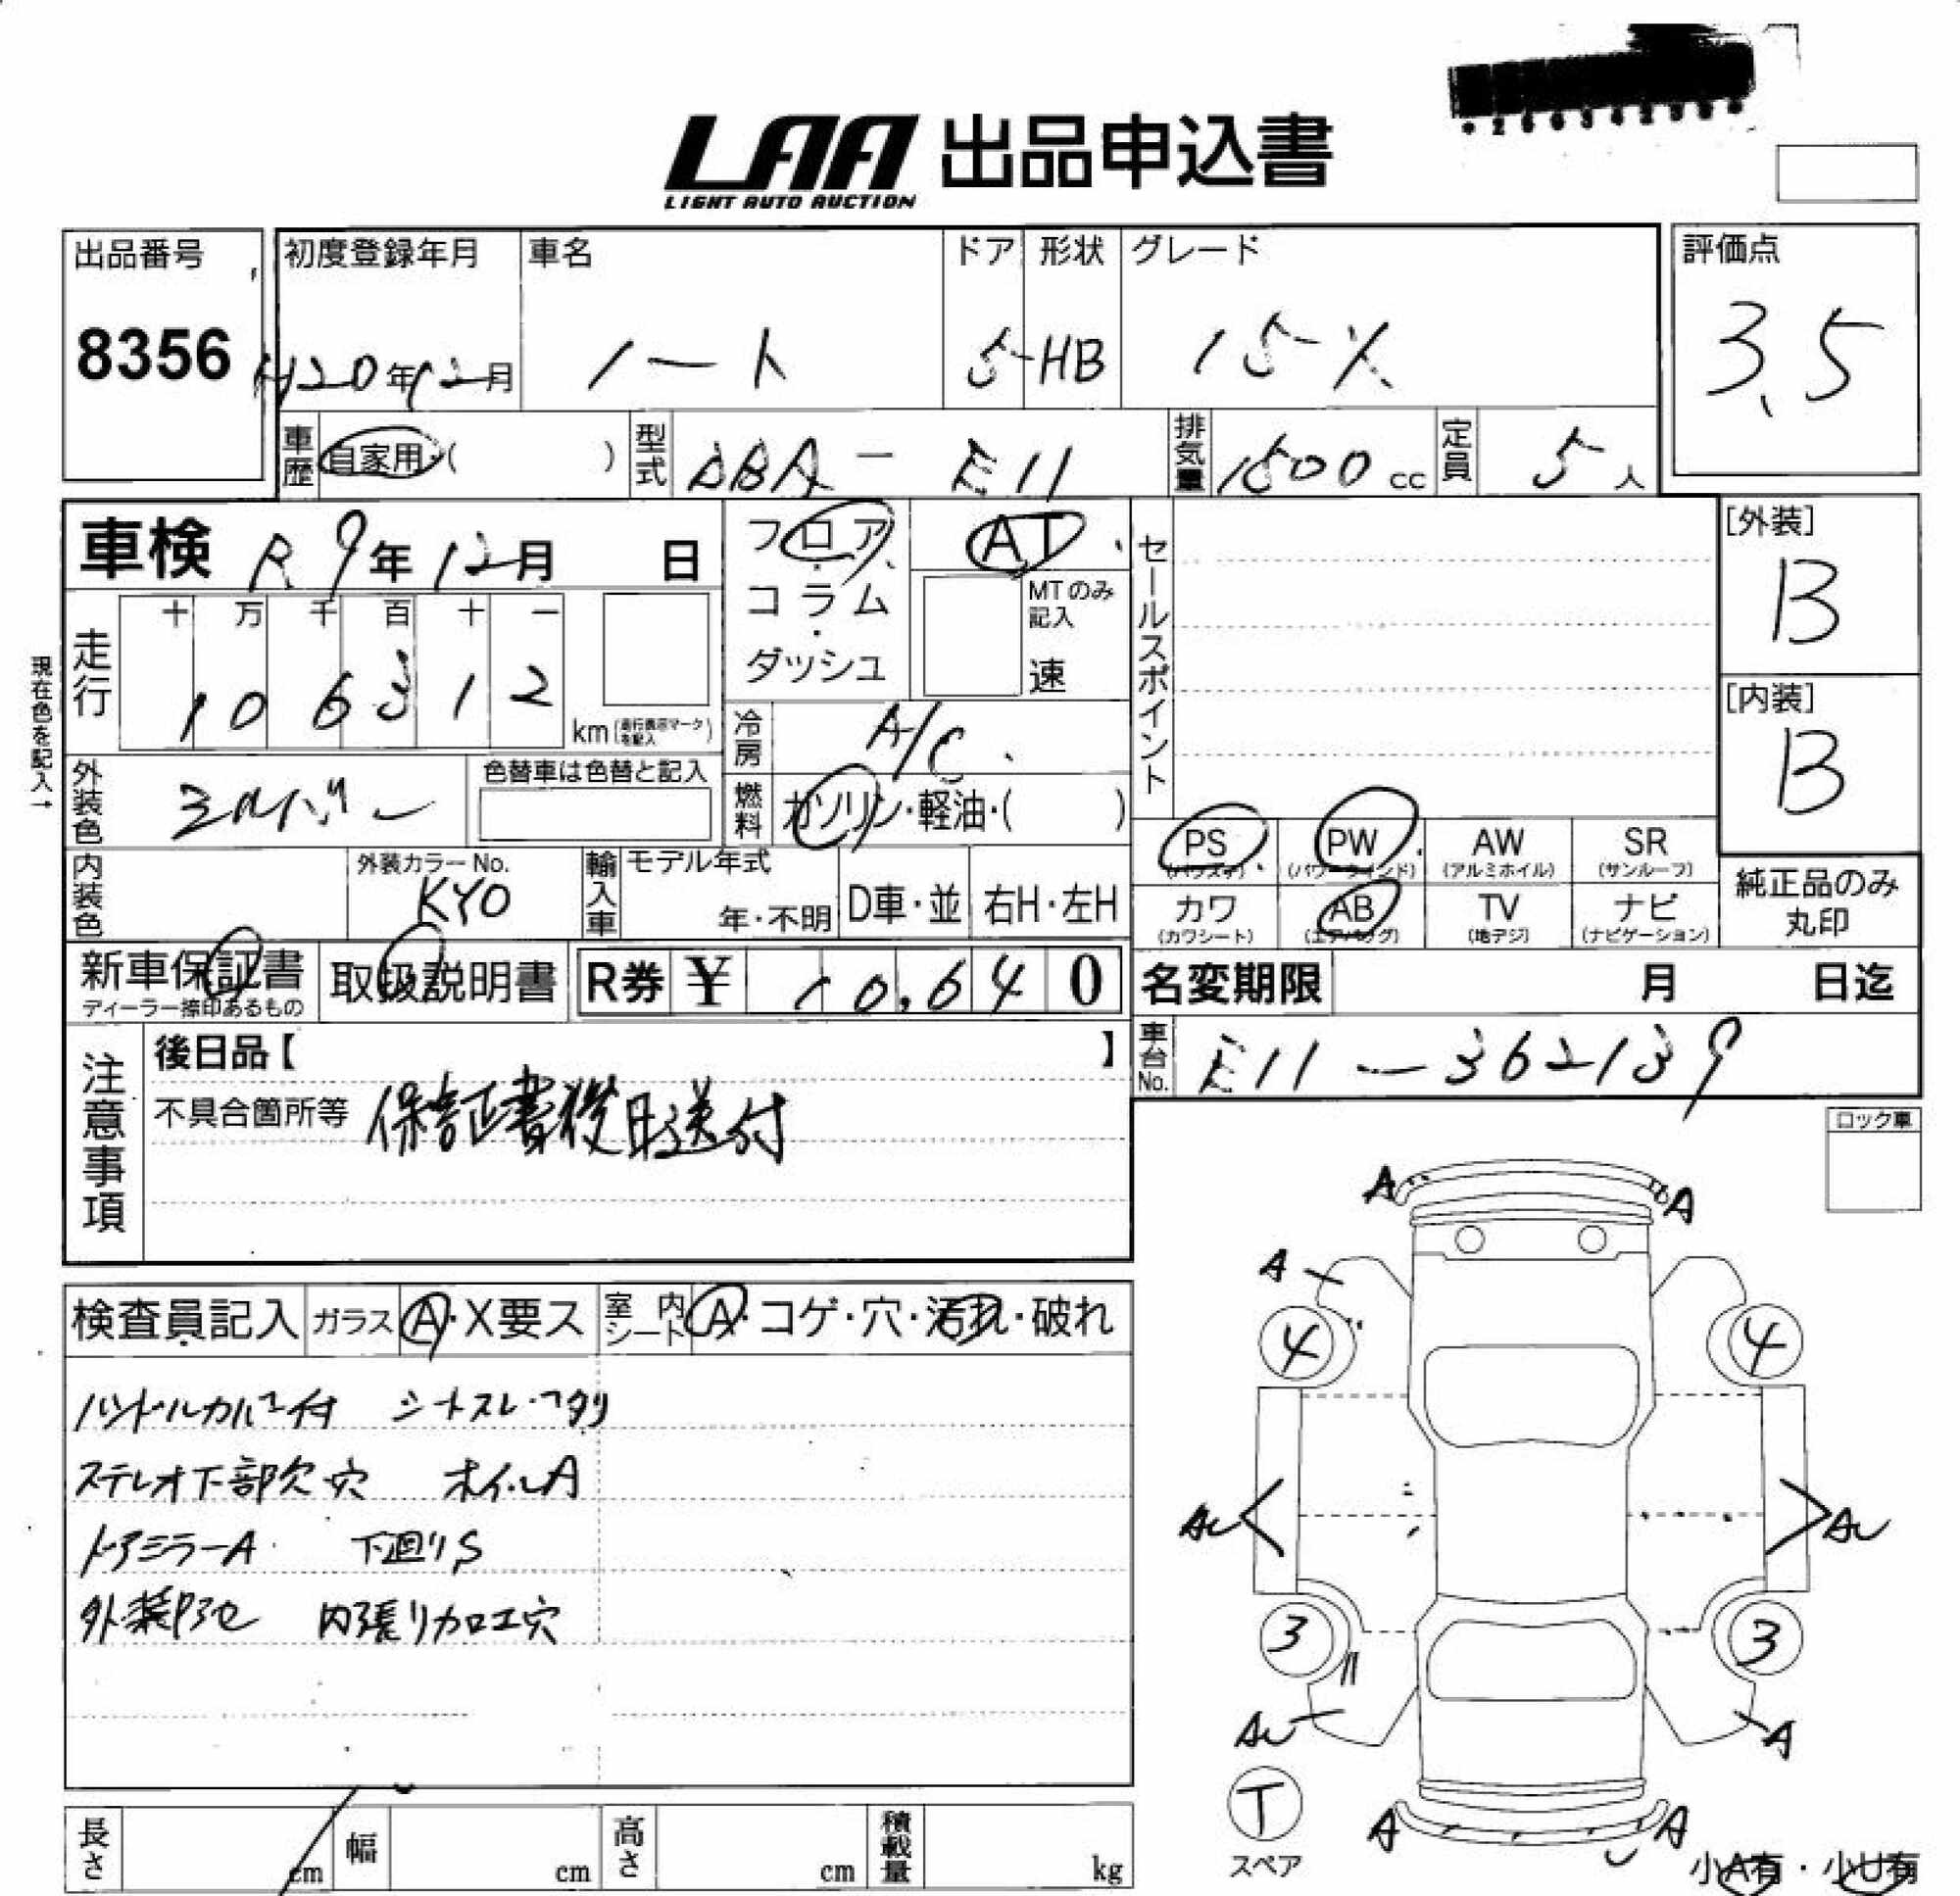 LAA 出品申込書
LIGHT AUTO AUCTION
出品番号
8356
初度登録年月
H20年12月
車名
ノート
ドア
5
形状
HB
グレード
15X
評価点
3.5
車歴 自家用・( )
型式 DBA-E11
排気量 1500cc
定員 5人
車検 R9年12月 日
フロア・コラム・ダッシュ
AT
MTのみ記入
速
セールスポイント
[外装]
B
[内装]
B
現在色を記入→
走行
十 万 千 百 十 一
1 0 6 3 1 2
km(走行表示マークを記入)
冷房 A/C
燃料 ガソリン・軽油・( )
外装色 シルバー
色替車は色替と記入
内装色
外装カラーNo.
KY0
輸入車
モデル年式
年・不明
D車・並
右H・左H
PS (パワステ)
PW (パワーウインド)
AW (アルミホイル)
SR (サンルーフ)
カワ (カワシート)
AB (エアバッグ)
TV (地デジ)
ナビ (ナビゲーション)
純正品のみ丸印
新車保証書
ディーラー捺印あるもの
取扱説明書
R券 ¥ 10,640
名変期限 月 日迄
車台No. E11-362139
注意事項
後日品【 】
不具合箇所等 保証書後日送付
ロック車
検査員記入
ガラス A・X要ス
室内シート A・コゲ・穴・汚れ・破れ
ハンドルカバー付 シートスレ・ヘタリ
ステレオ下部欠穴 ホイルA
ドアミラーA 下廻りS
内張り加工穴
A A
A
4 4
AU AU
3 3
AU A
T
スペア
A A
小A有・小U有
長さ cm
幅 cm
高さ cm
積載量 kg